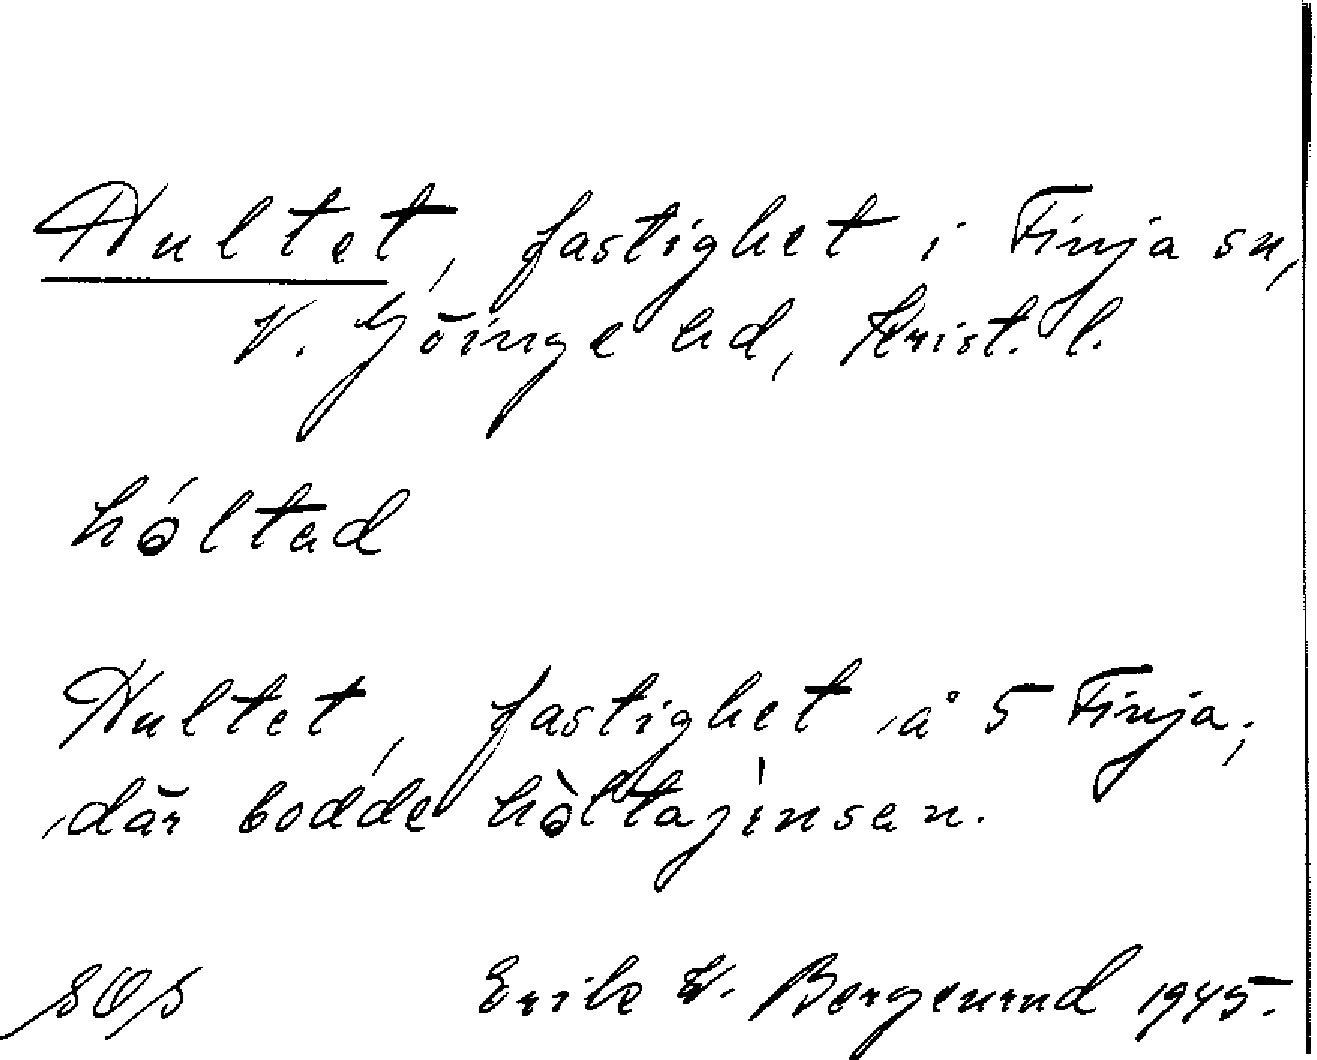 Hultet, fastighet i Finja sn,
V. Göinge hd, Krist. l.
hóltad
Hultet, fastighet å 5 Finja;
där bodde hòltajínsan.
Erik W. Bergeurnd 1945.